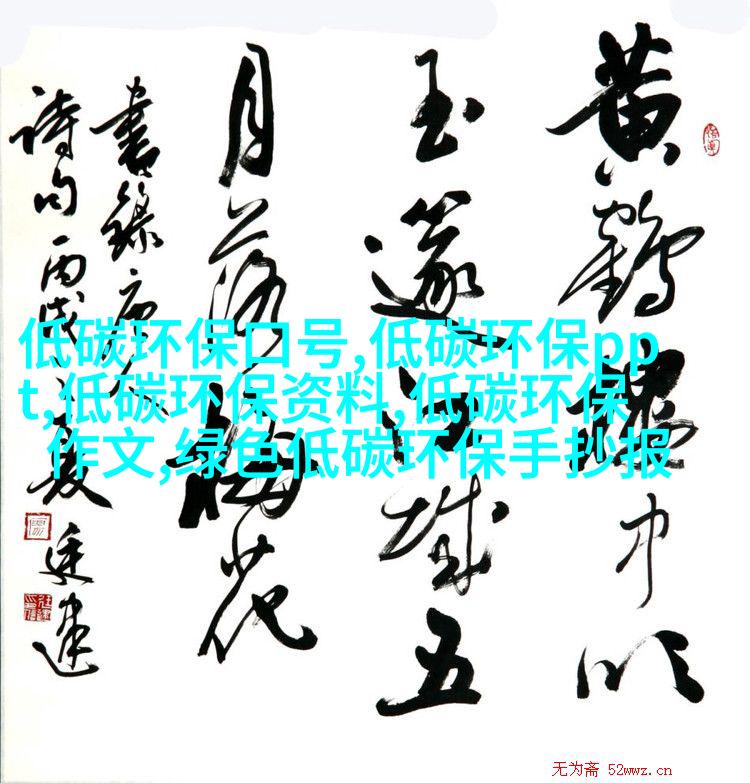 黄鶴樓中吹
玉篴江城五
月落梅花
書錄唐人
詩句丙戌之夏廷建
低碳环保口号,低碳环保pp
t,低碳环保资料,低碳环保
作文,绿色低碳环保手抄报
无为斋 52wwz.cn